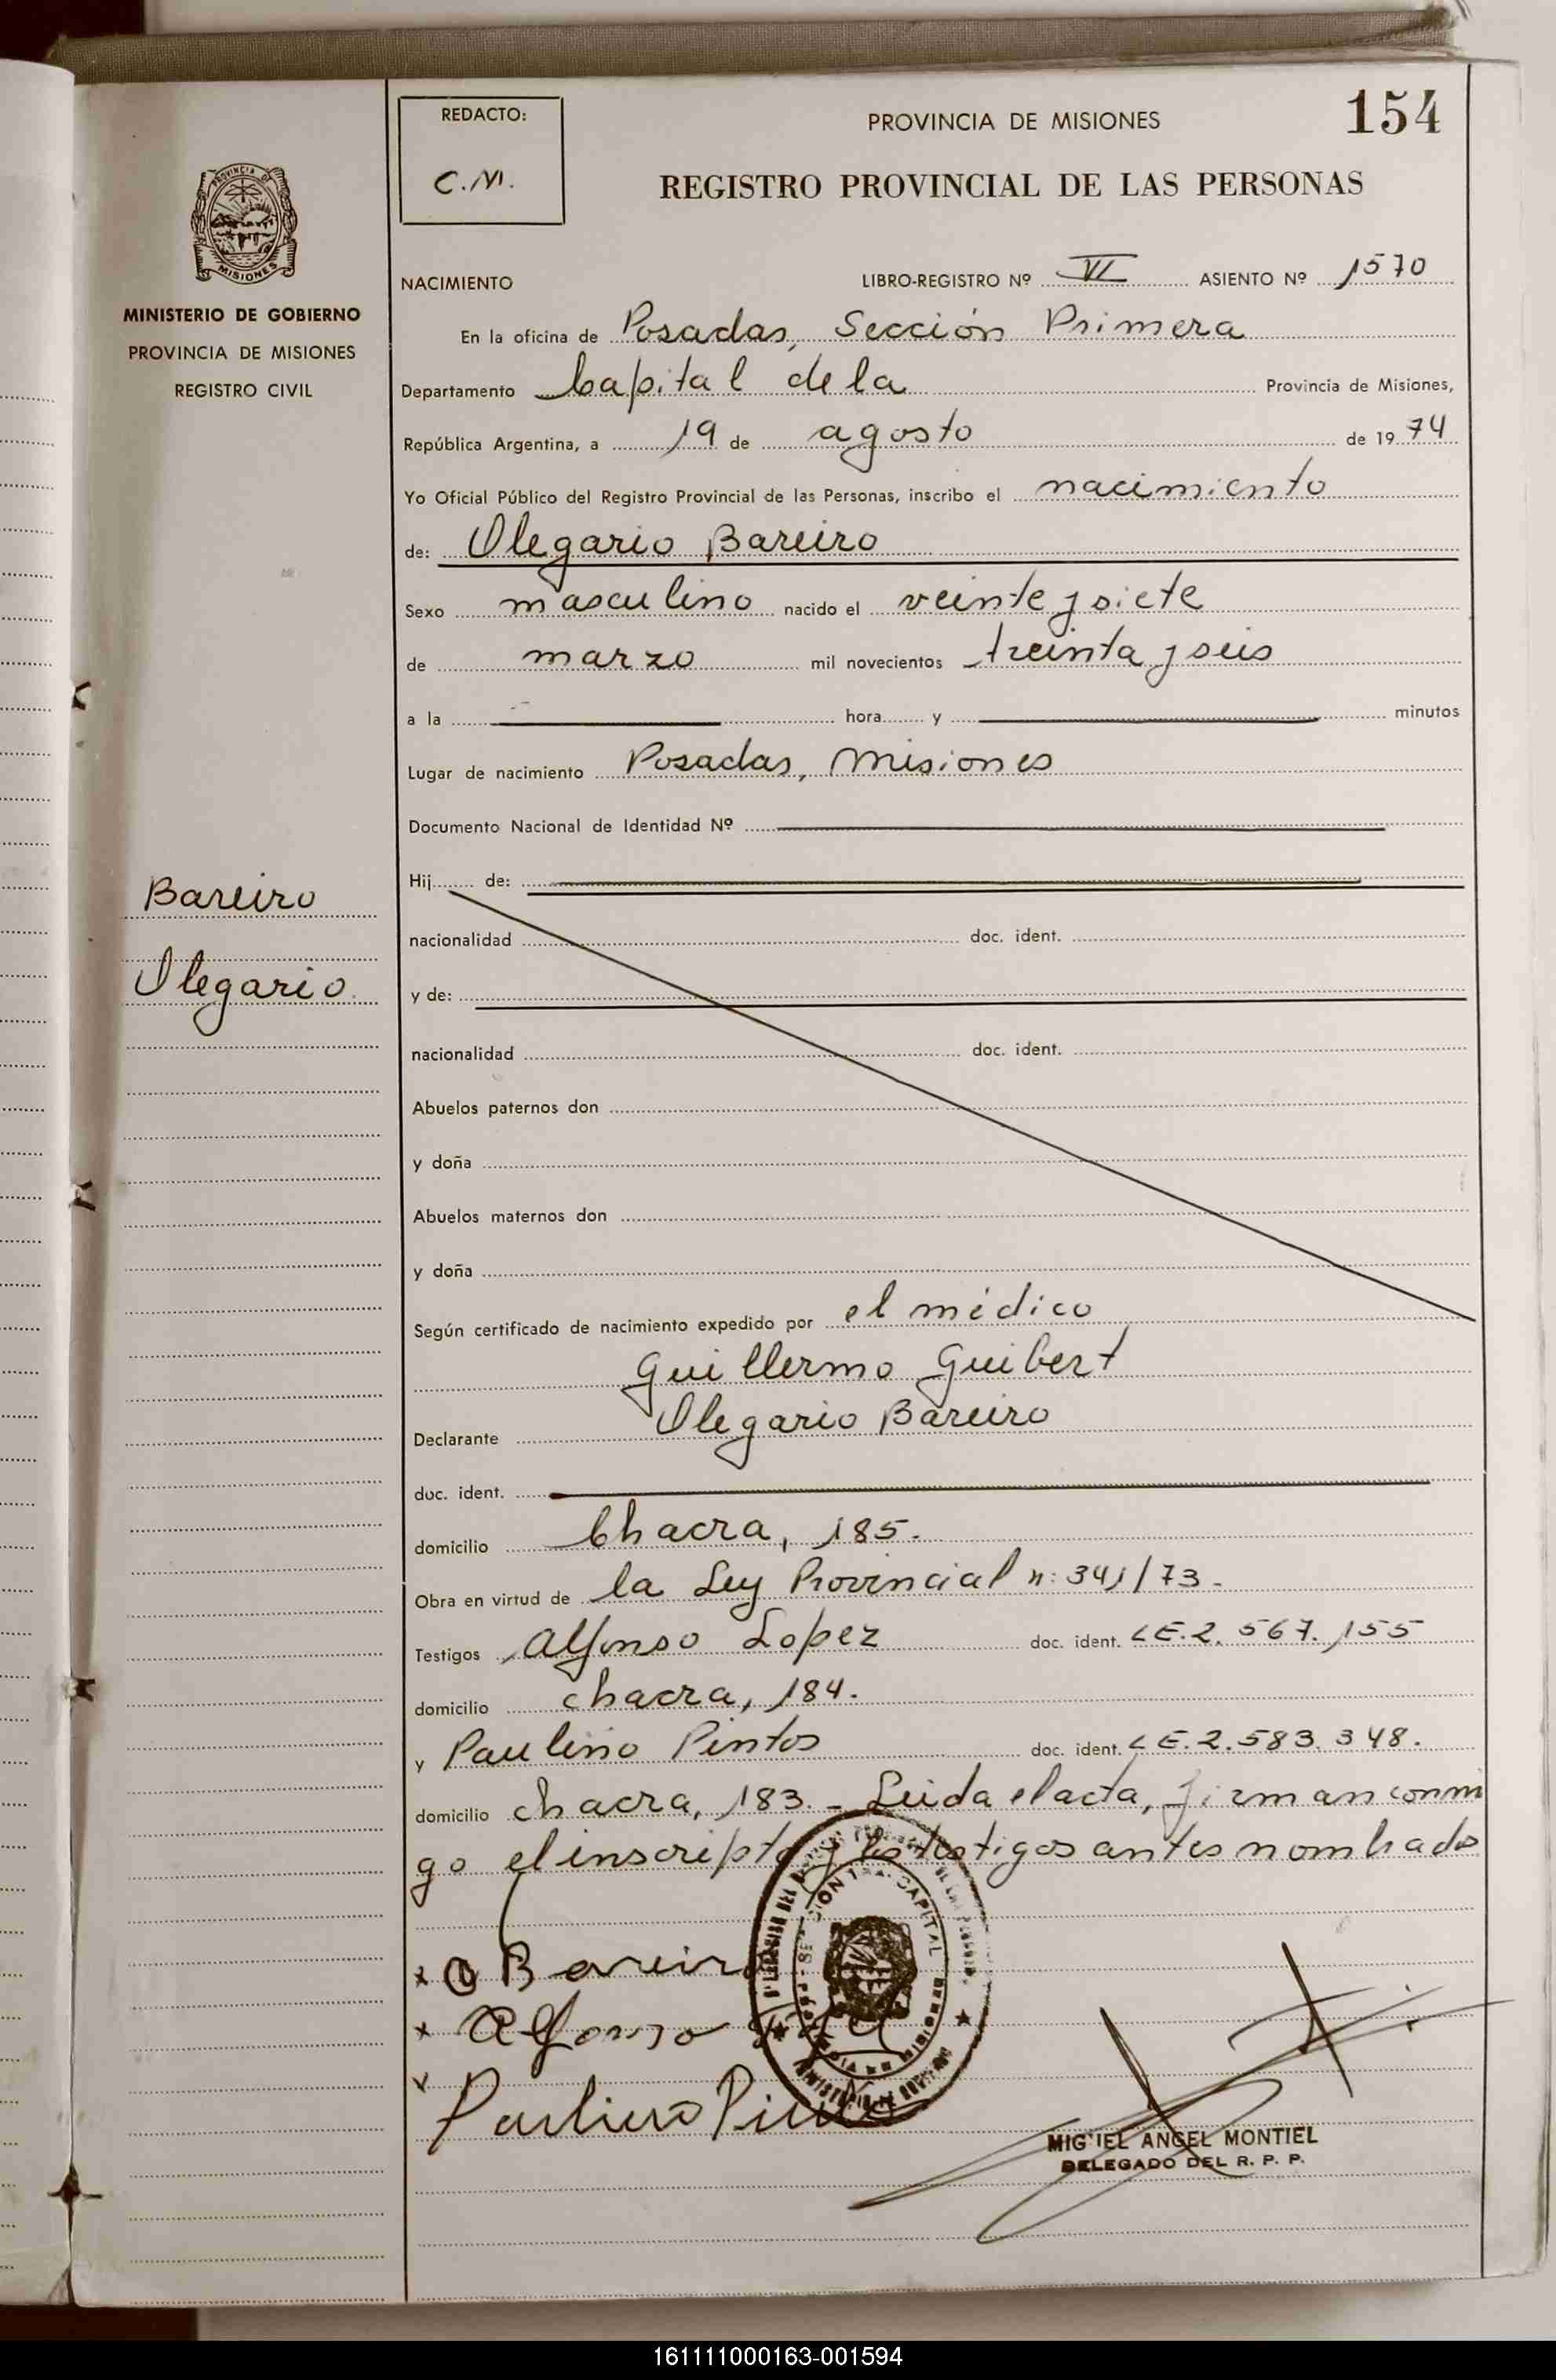 REDACTO:
C.M.
PROVINCIA DE MISIONES
154
REGISTRO PROVINCIAL DE LAS PERSONAS
PROVINCIA DE
MISIONES
MINISTERIO DE GOBIERNO
PROVINCIA DE MISIONES
REGISTRO CIVIL
NACIMIENTO LIBRO-REGISTRO Nº VI ASIENTO Nº 1570
En la oficina de Posadas, Sección Primera
Departamento Capital de la Provincia de Misiones,
República Argentina, a 19 de agosto de 1974
Yo Oficial Público del Registro Provincial de las Personas, inscribo el nacimiento
de: Olegario Bareiro
Sexo masculino nacido el veinte y siete
de marzo mil novecientos treinta y seis
a la hora y minutos
Lugar de nacimiento Posadas, Misiones
Documento Nacional de Identidad Nº
Hij de:
Bareiro
nacionalidad doc. ident.
Olegario
y de:
nacionalidad doc. ident.
Abuelos paternos don
y doña
Abuelos maternos don
y doña
Según certificado de nacimiento expedido por el médico
Guillermo Guibert
Declarante Olegario Bareiro
doc. ident.
domicilio Chacra, 185.
Obra en virtud de la Ley Provincial n: 341/73.
Testigos Alfonso Lopez doc. ident. L E. 2. 567. 155
domicilio chacra, 184.
y Paulino Pintos doc. ident. L E. 2. 583. 348.
domicilio chacra, 183. - Leida el acta, firman conmi
go el inscripto y los testigos antes nombrados
x O Bareiro
x Alfonso
x Paulino Pinto
CAPITAL
MIGUEL ANGEL MONTIEL
DELEGADO DEL R. P. P.
161111000163-001594